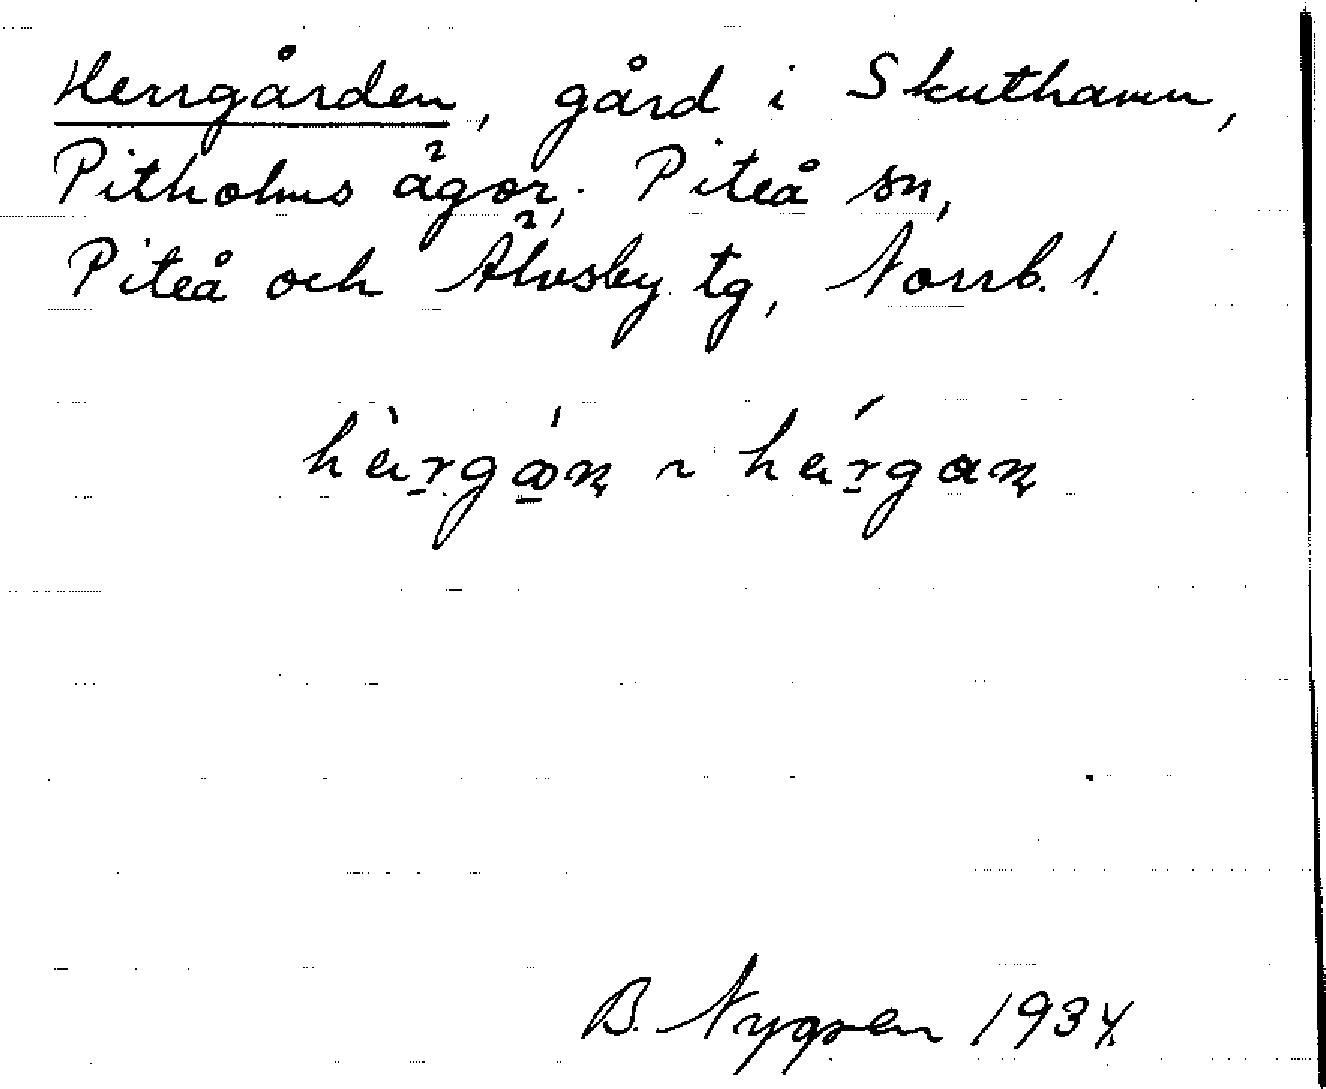 Herrgården, gård i Skuthamn,
Pitholms ägor, Piteå sn,
Piteå och Älvsby tg, Norrb. l.
hàrgǻn ~ hárgan
B. Nygren 1934.